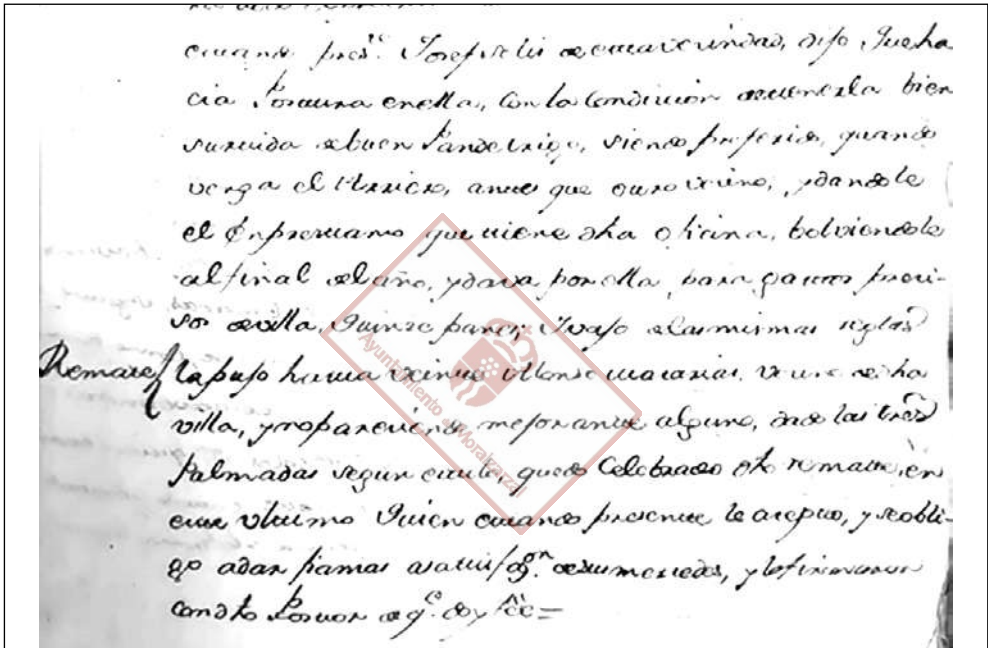 estando pres.te Josef de esta vecindad, dijo que ha
cia Postura en ella, con la condicion de tenerla bien
surtida de buen Pan de trigo, siendo preferido, quando
venga el Arriero, antes que otro vecino, y dandole
el Enprestamo que tiene dha oficina, bolviendole
al final del año, y dava por ella, para gastos preci-
sos de villa, Quinze panes; Y vajo de las mismas reglas
Remate la puso hasta veinte Alonso vecino de dha
villa, y no pareciendo mejorante alguno, dado las tres
Palmadas segun estilo, quedo Celebrado dho remate, en
este ultimo Quien estando presente le acepto, y se obli-
go a dar fianzas a satisfaz.on de sus mercedes, y lo firmaron
con dho Postor de q.e doy fée =
Ayuntamiento de Moralzarzal